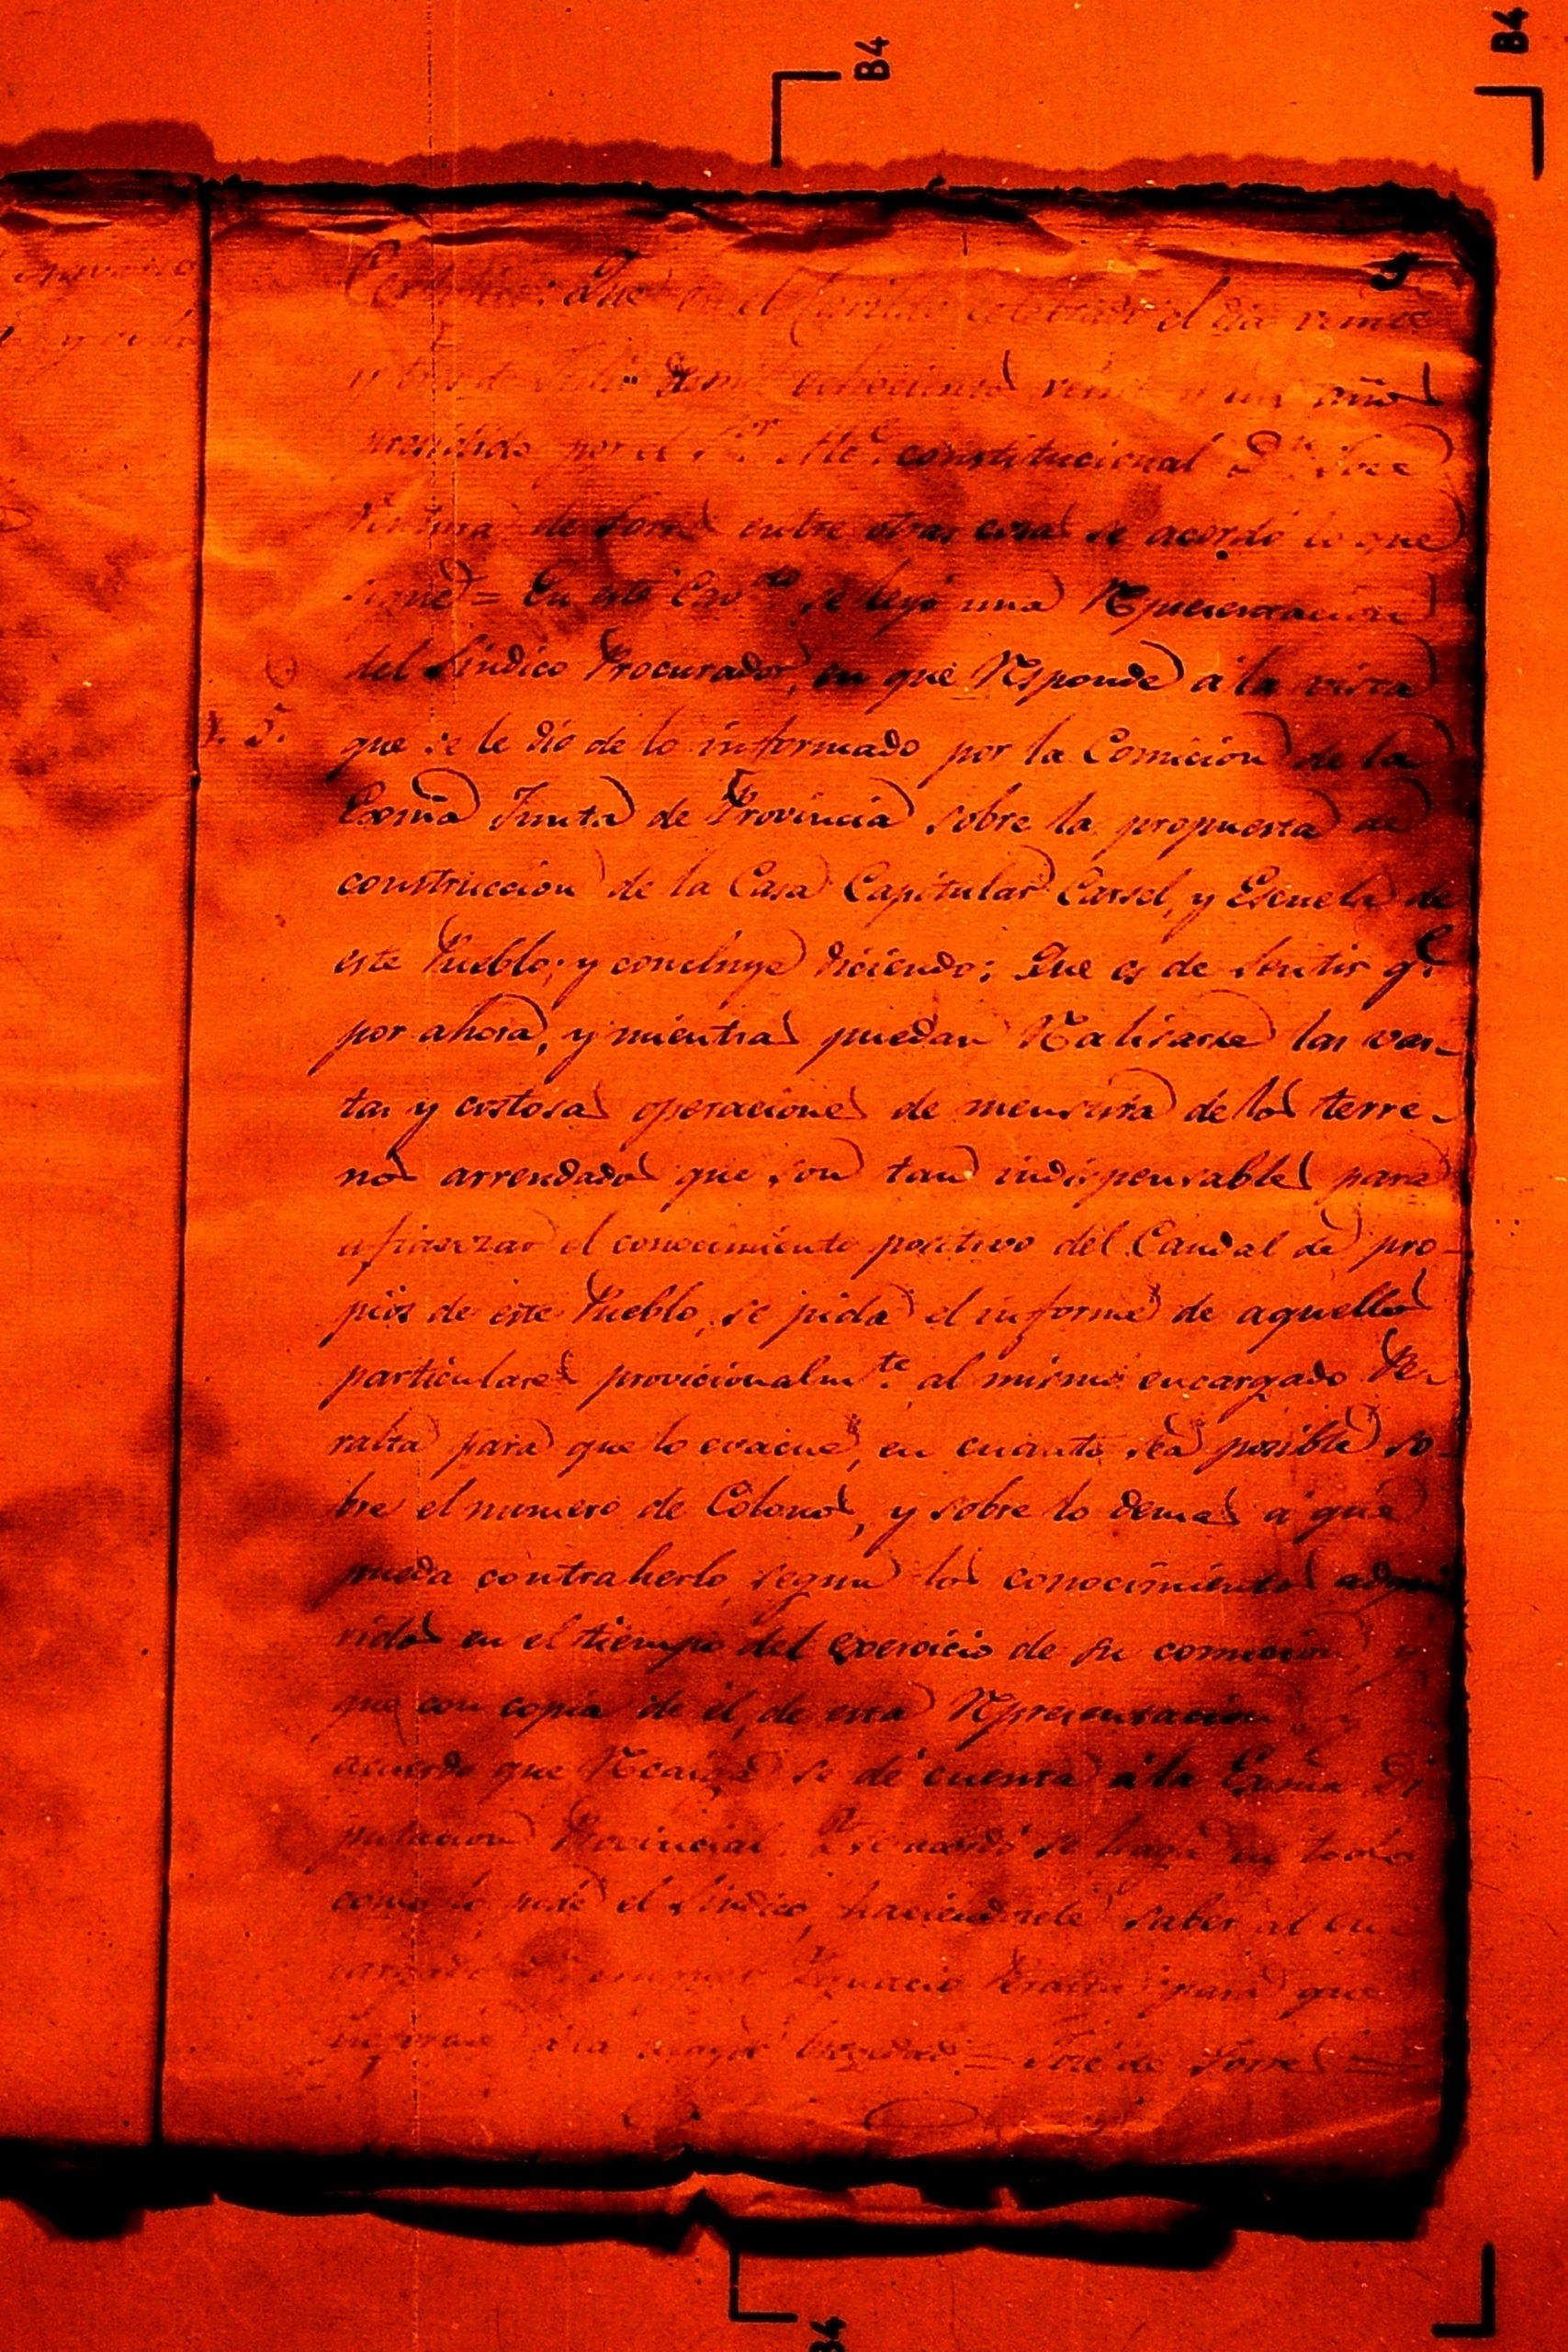 B4
B4
5
Certifico: Que en el Cavildo celebrado el dia veinte
y tres de Julio de mil ochocientos veinte y un años
presidido por el S.or Alc.e constitucional D.n Jose
Ventura de Torres entre otras cosas se acordó lo que
sigue = En este Cav.do se leyó una Representacion
del Sindico Procurador, en que Responde a la vista
que se le dio de lo informado por la Comicion de la
Exma Junta de Provincia sobre la propuesta de
construccion de la Casa Capitular Carsel, y Escuela de
este Pueblo; y concluye diciendo: Que es de sentir q.e
por ahora, y mientras puedan Realisarse las vas-
tas y costosas operaciones de mensura de los terre-
nos arrendados que son tan indispensables para
afianzar el conocimiento positivo del Caudal de pro-
pios de este Pueblo, se pida el informe de aquellos
particulares provicionalm.te al mismo encargado Pe-
ralta para que lo evacue, en cuanto sea posible so-
bre el numero de Colonos, y sobre lo demas a que
pueda contraherlo segun los conocimientos adqui
ridos en el tiempo del exercicio de su comicion, y
que con copia de él, de esta Representacion y
acuerdo que Recaiga se dé cuenta a la Exma Di
putacion Provincial. Y se acordó se haga en todo
como lo pide el Sindico, haciendosele saber al en-
cargado Ignacio Peralta para que
informe a la mayor brevedad = José de Torres =
B4